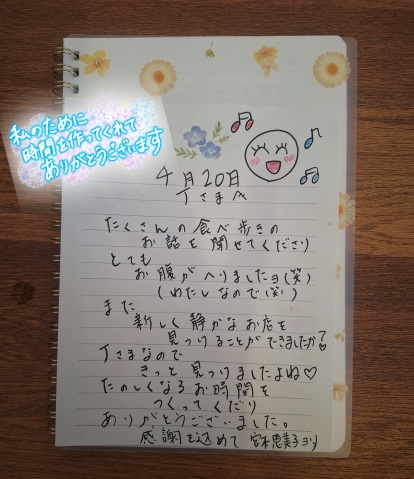 私のために
時間を作ってくれて
ありがとうございます
4月20日
Tさまへ
たくさんの食べ歩きの
お話を聞せてくださり
とても
お腹がへりましたヨ(笑)
(わたしなので(笑))
また
新しく静かなお店を
見つけることができましたか?
Tさまなので
きっと見つけましたよね♡
たのしくなるお時間を
つくってくだり
ありがとうございました。
感謝を込めて 宮本恵美子より